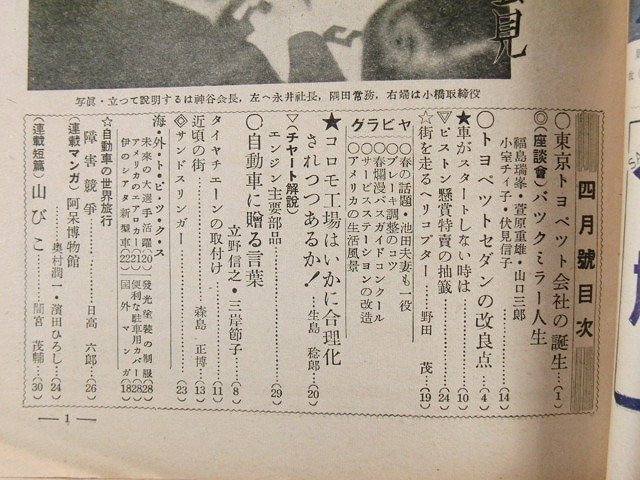 会見
写眞・立つて説明するは神谷会長，左へ永井社長，隅田常務，右端は小橋取締役
四月號目次
◎東京トヨペット会社の誕生…(1)
(座談會)バックミラー人生
福島瑞峯・萱原重雄・山口三郎
小室チイ子・伏見信子…(14)
○トヨペットセダンの改良点…(4)
★車がスタートしない時は…(10)
▽ピストン懸賞特賣の抽籤…(24)
☆街を走るヘリコプター…野田 茂…(19)
グラビヤ
○春の話題・池田夫妻も一役
○ブレーキ調整のコツ
○春爛漫バスガイドコンクール
○サービスステーションの改造
○アメリカの生活風景
★コロモ工場はいかに合理化
されつつあるか！…生島 稔郎…(20)
▽(チャート解説)
エンジン主要部品…(29)
○自動車に贈る言葉
立野信之・三岸節子…(8)
タイヤチエーンの取付け…(11)
近頃の街…森島 正博…(13)
◇サンドスリンガー…(23)
海・外・ト・ピ・ッ・ク・ス
未来の大選手活躍(20)
アメリカのエアロカー(21)
伊のシアタ新型車(22)
発光塗装の制服(28)
便利な駐車用カバー(28)
国外マンガ(18)
☆自動車の世界旅行
障害競爭…日高 六郎…(26)
(連載マンガ)阿呆博物館
奥村潤一・濱田ひろし…(24)
(連載短篇)山びこ…間宮 茂輔…(30)
— 1 —